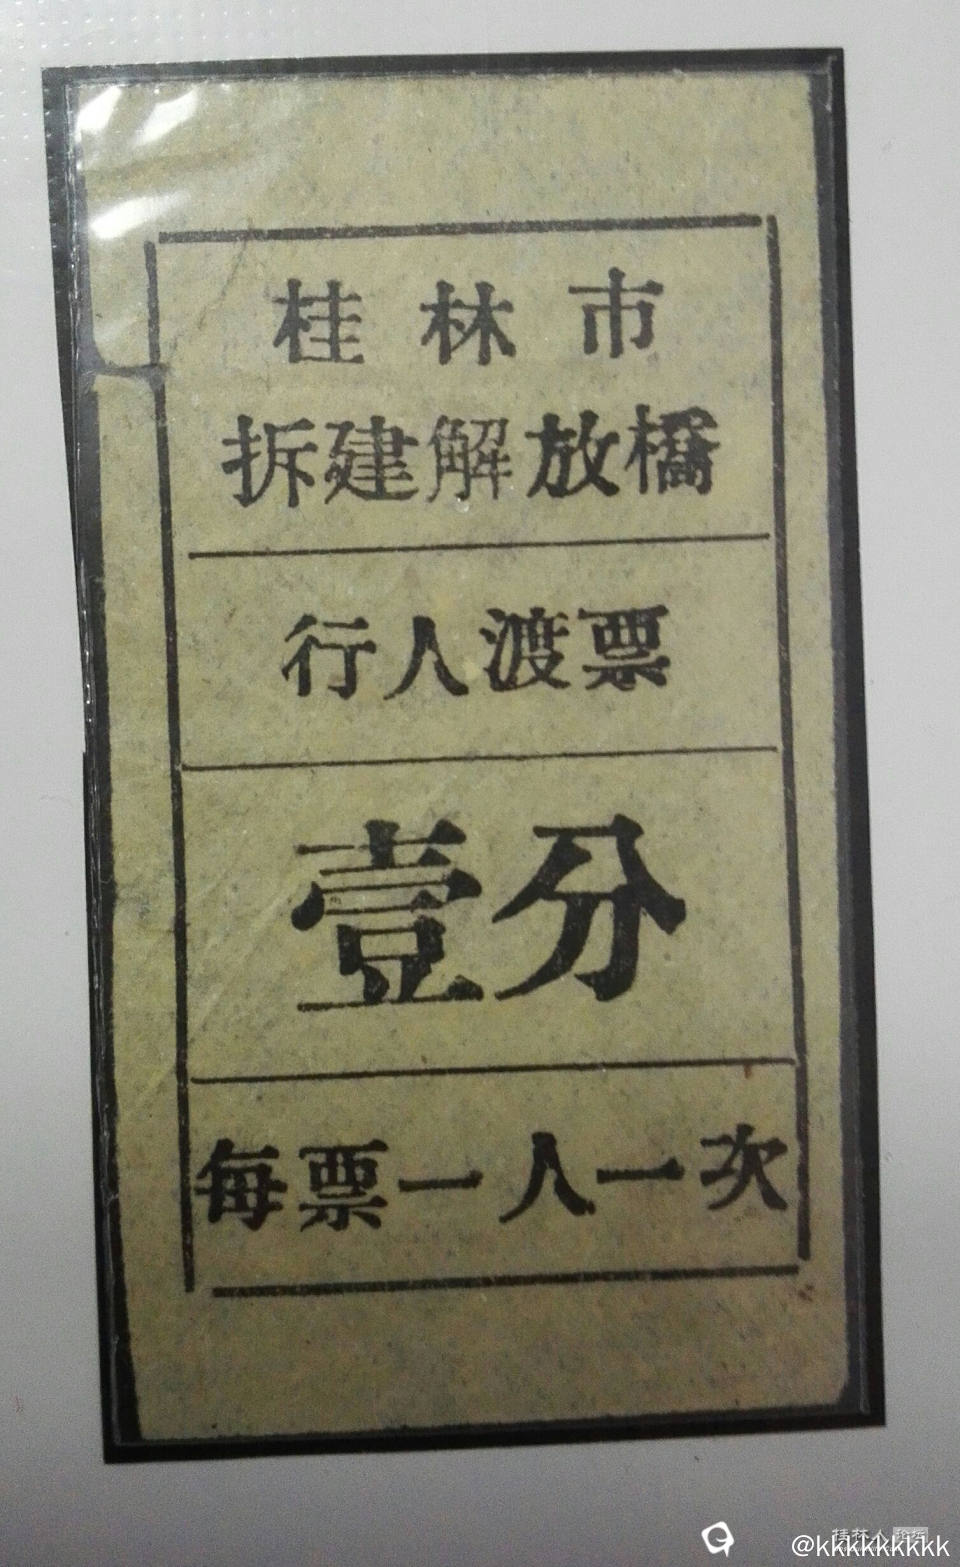 桂林市
拆建解放橋
行人渡票
壹分
每票一人一次
桂林人论坛
@kkkkkkkkkk